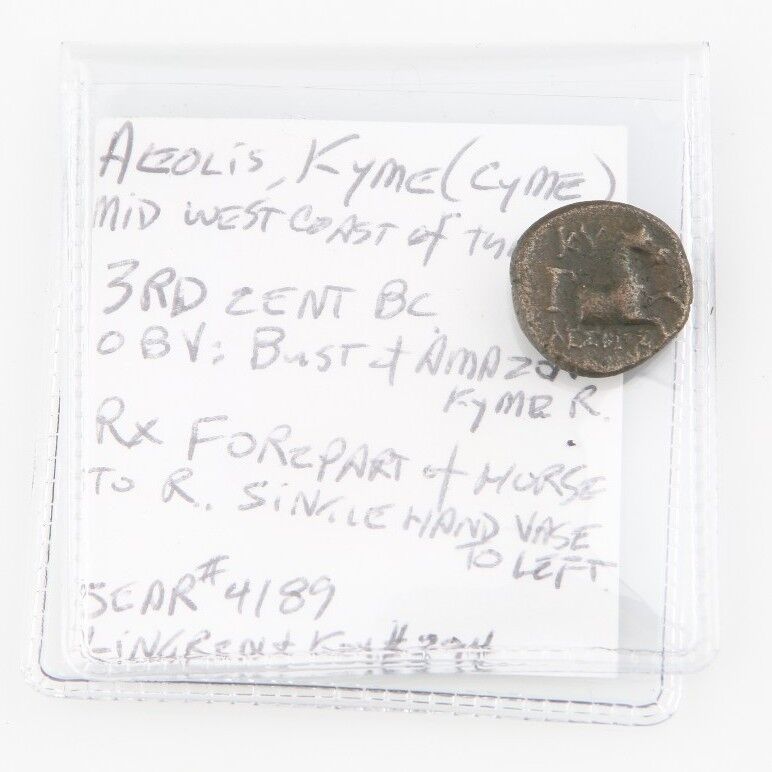 AEOLIS, KYME (CYME)
MID WEST COAST of
3RD CENT BC
OBV: BUST of AMAZON
KYME R.
RX FOREPART of HORSE
TO R. SINGLE HAND VASE
TO LEFT.
SEAR # 4189
LINGREN & #
KY